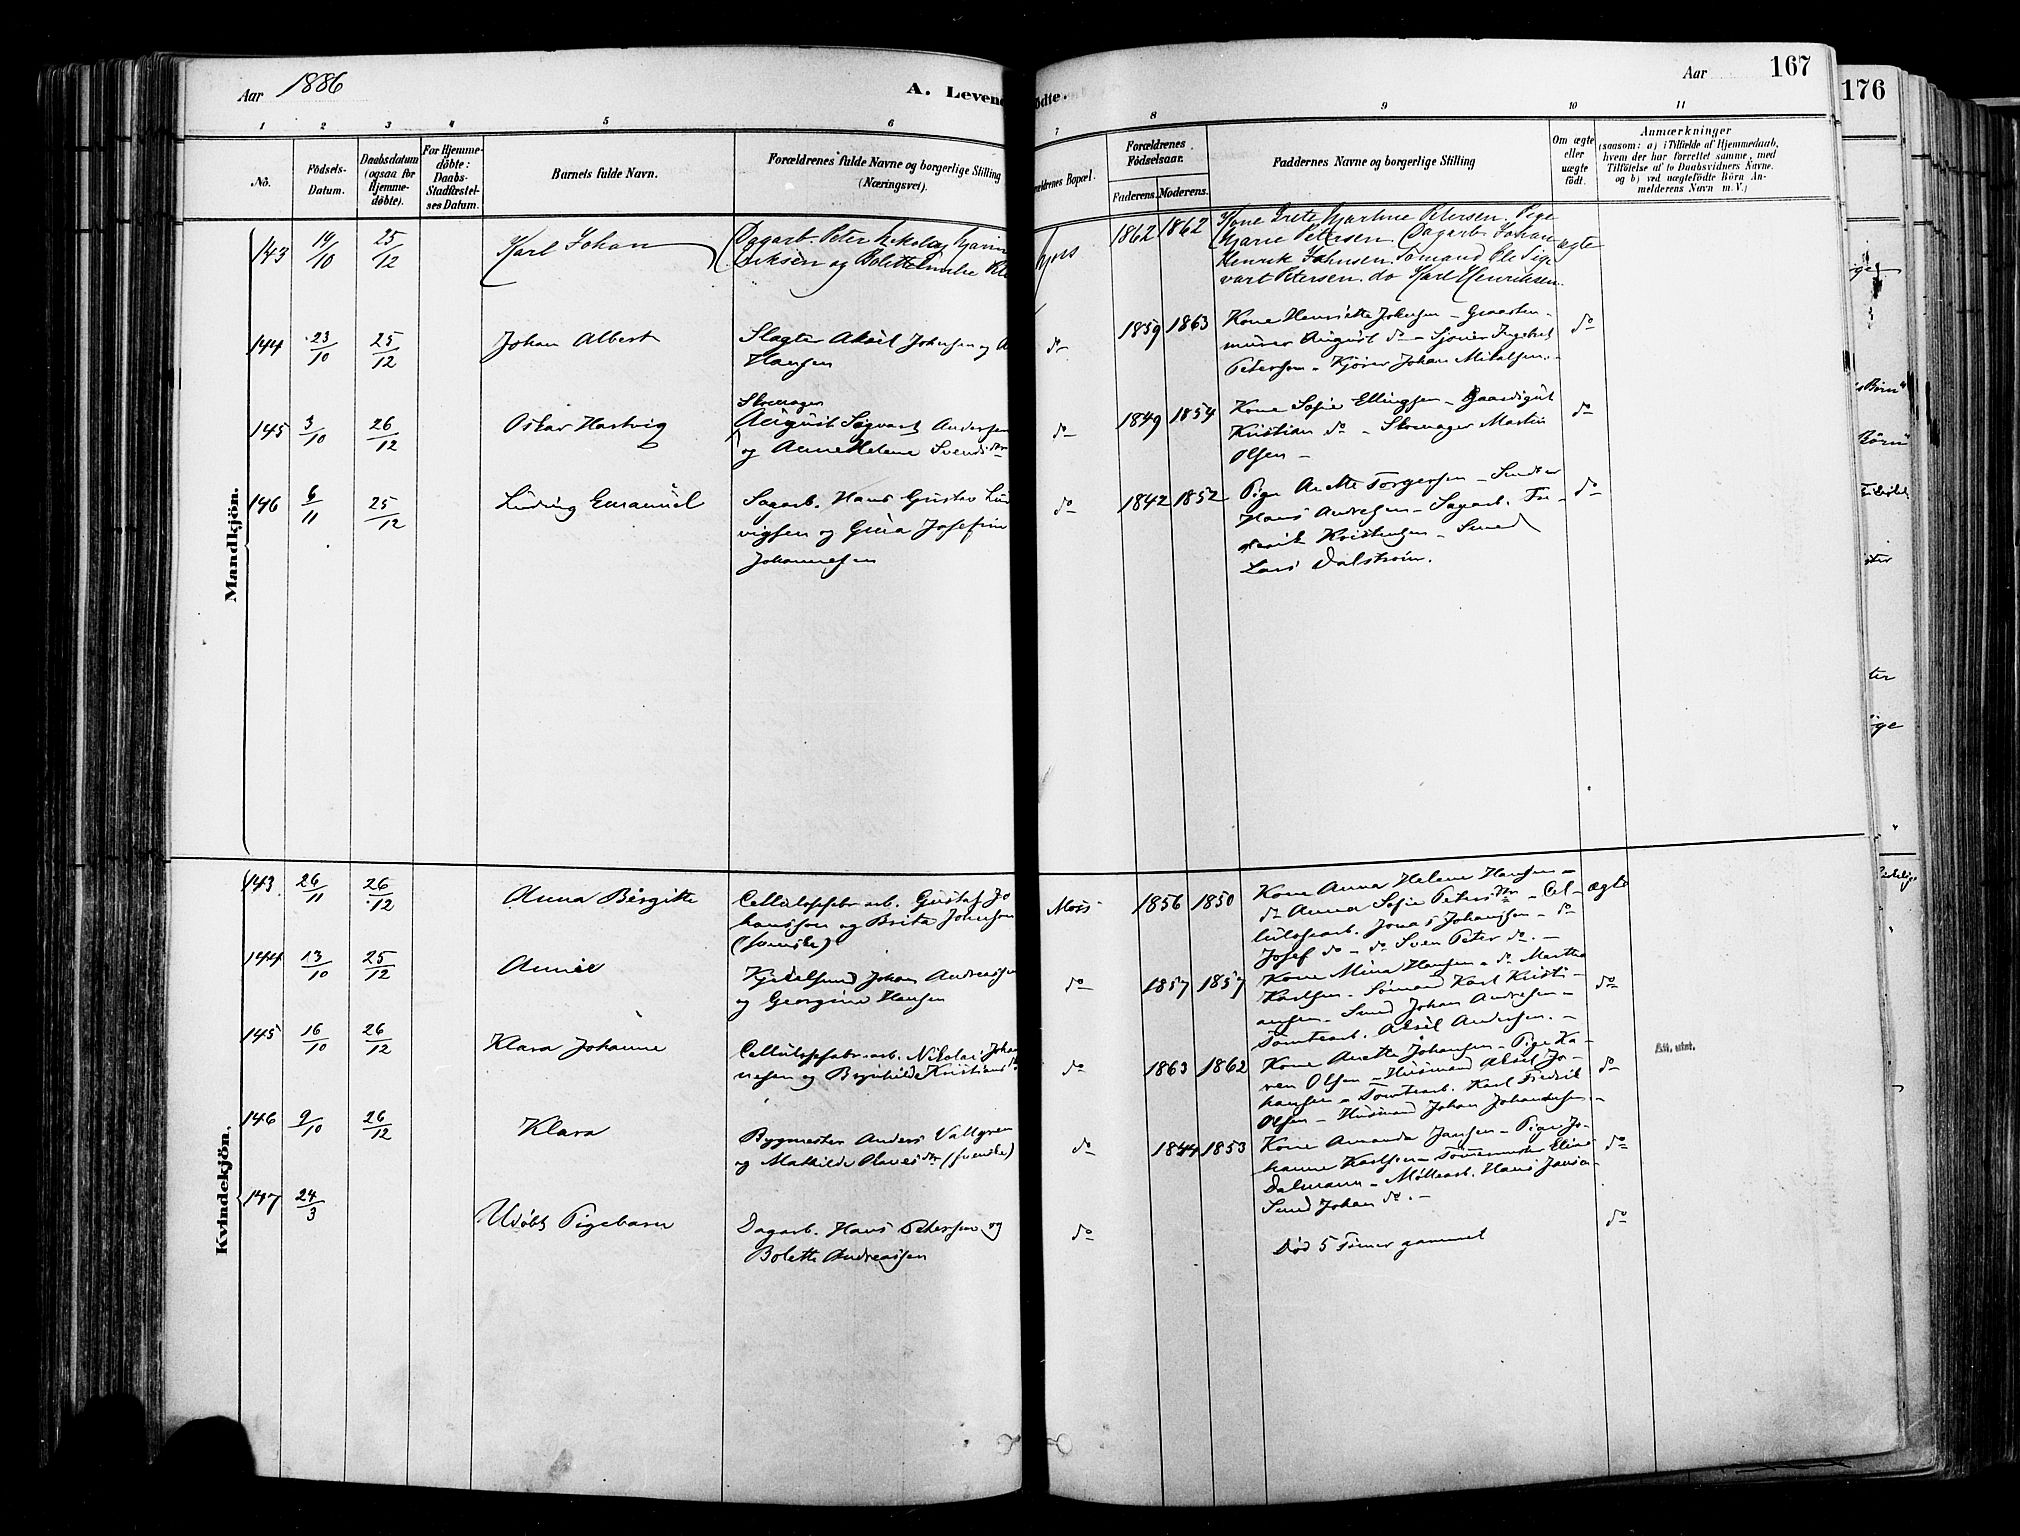 Aar 1886
A. Levende
ødte.
Aar
167
176
1 2 3 4 5 6 7 8 9 10 11
No.
Födsels-
Datum.
Daabsdatum
(ogsaa for
Hjemme-
döbte).
For Hjemme-
döbte:
Daabs-
Stadfæstel-
ses Datum.
Barnets fulde Navn.
Forældrenes fulde Navne og borgerlige Stilling
(Næringsvei).
ældrenes Bopæl.
Forældrenes
Födselsaar.
Faderens. Moderens.
Faddernes Navne og borgerlige Stilling
Om ægte
eller
uægte
født.
Anmærkninger
(saasom: a) i Tilfælde af Hjemmedaab,
hvem der har forrettet samme, med
Tilföielse af to Daabsvidners Navne.
og b) ved uægtefödte Börn An-
melderens Navn m. V.)
Mandkjön.
143 19/10 25/12 Karl Johan
Dagarb. Peter Nikolay Marin
og
1862 1862
Kone Grete Martine Petersen. Pige
Marie Petersen. Dagarb. Johan
Henrik Johnsen. Sömand Ole Sige
vart Petersen. do Karl Henriksen.
ægte
144 23/10 25/12 Johan Albert
Slagter Aksel Johnsen og
Hansen
do
1859 1863
Kone Henriette Johnsen – Graasten-
murer August do – Ingebret
Petersen – Kjører Johan Mikalsen. –
do
145 3/10 26/12 Oskar Hartvig
Skomager
August Sigvart Andersen
og Anne Helene Svends dtr
do
1849 1854
Kone Sofie Ellingsen – Gaardsgut
Kristian do – Skomager Martin
Olsen –
do
146 6/11 25/12 Ludvig Emanuel
Sagarb. Hans Gustav Lud
vigsen og Gina Josefine
Johannesen
do
1842 1852
Pige Anette Torgersen – Smed
Hans Andresen – Sagarb. Fre
derik Kristensen – Smed
Lars Dalstrøm.
do
Kvindekjön.
143 26/11 26/12 Anna Birgitte
Cellulosefabr. arb. Gustaf Jo
hansson og Brita Johnsen
(svenske)
Moss
1856 1850
Kone Anna Helene Hansen –
do Anna Sofie Peters dtr – Cel-
lulosearb. Jonas Johansson – do
Josef do – do Sven Peter do. –
ægte
144 13/10 25/12
Kjedelsmed Johan Andreassen
og Georgine Hansen
do
1857 1857
Kone Mina Hansen – do Martha
Karlsen – Sømand Karl Kristi-
ansen – Smed Johan Andresen –
Tomtearb. Aksel Andersen. –
do
145 16/10 26/12 Klara Johanne
Cellulosefabr. arb. Nikolai Johan
nesen og Brynhilde Kristians
do
1863 1862
Kone Anette Johansen – Pige Ka-
ren Olsen – Husmand Aksel Jo-
hansen – Tomtearb. Karl Fredrik
Olsen – Husmand Johan Johannesen. –
do
Att. utst.
146 9/10 26/12 Klara
Bygmester Anders Vallgren
og Mathilde Olaves dtr (svenske)
do
1844 1853
Kone Amanda Jansen – Pige Jo-
hanne Karlsen – Tømmermester Elias
Dalmann – Møllearb. Hans Jansen
Smed Johan do. –
do
147 24/3 Udøbt Pigebarn
Dagarb. Hans Petersen og
Bolette Andreassen
do
Død 5 Timer gammel
do